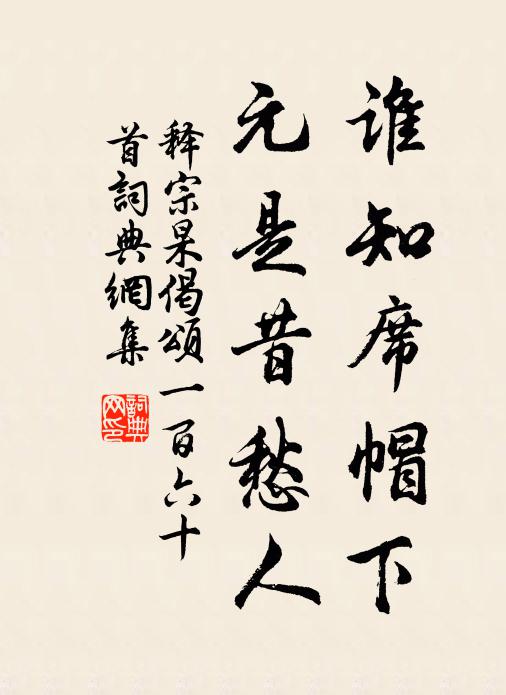 谁知席帽下
元是昔愁人
释宗杲偈颂一百六十
首詞典網集
詞典
网印